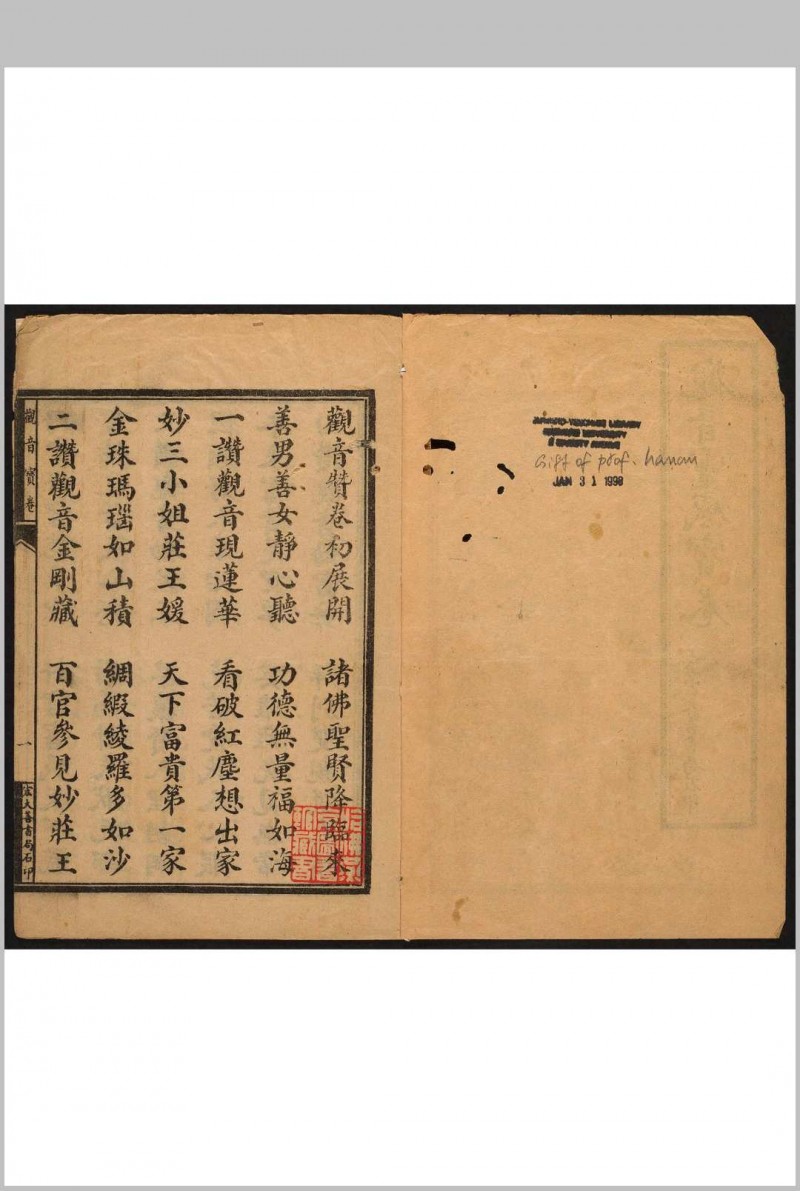 HARVARD-YENCHING LIBRARY
HARVARD UNIVERSITY
2 DIVINITY AVENUE
Gift of prof. Hanan
JAN 31 1998
觀音贊卷初展開 諸佛聖賢降臨來
善男善女靜心聽 功德無量福如海
一讚觀音現蓮華 看破紅塵想出家
妙三小姐莊王媛 天下富貴第一家
金珠瑪瑙如山積 綢緞綾羅多如沙
二讚觀音金剛藏 百官參見妙莊王
觀音寶卷
一
宏大善書局石印